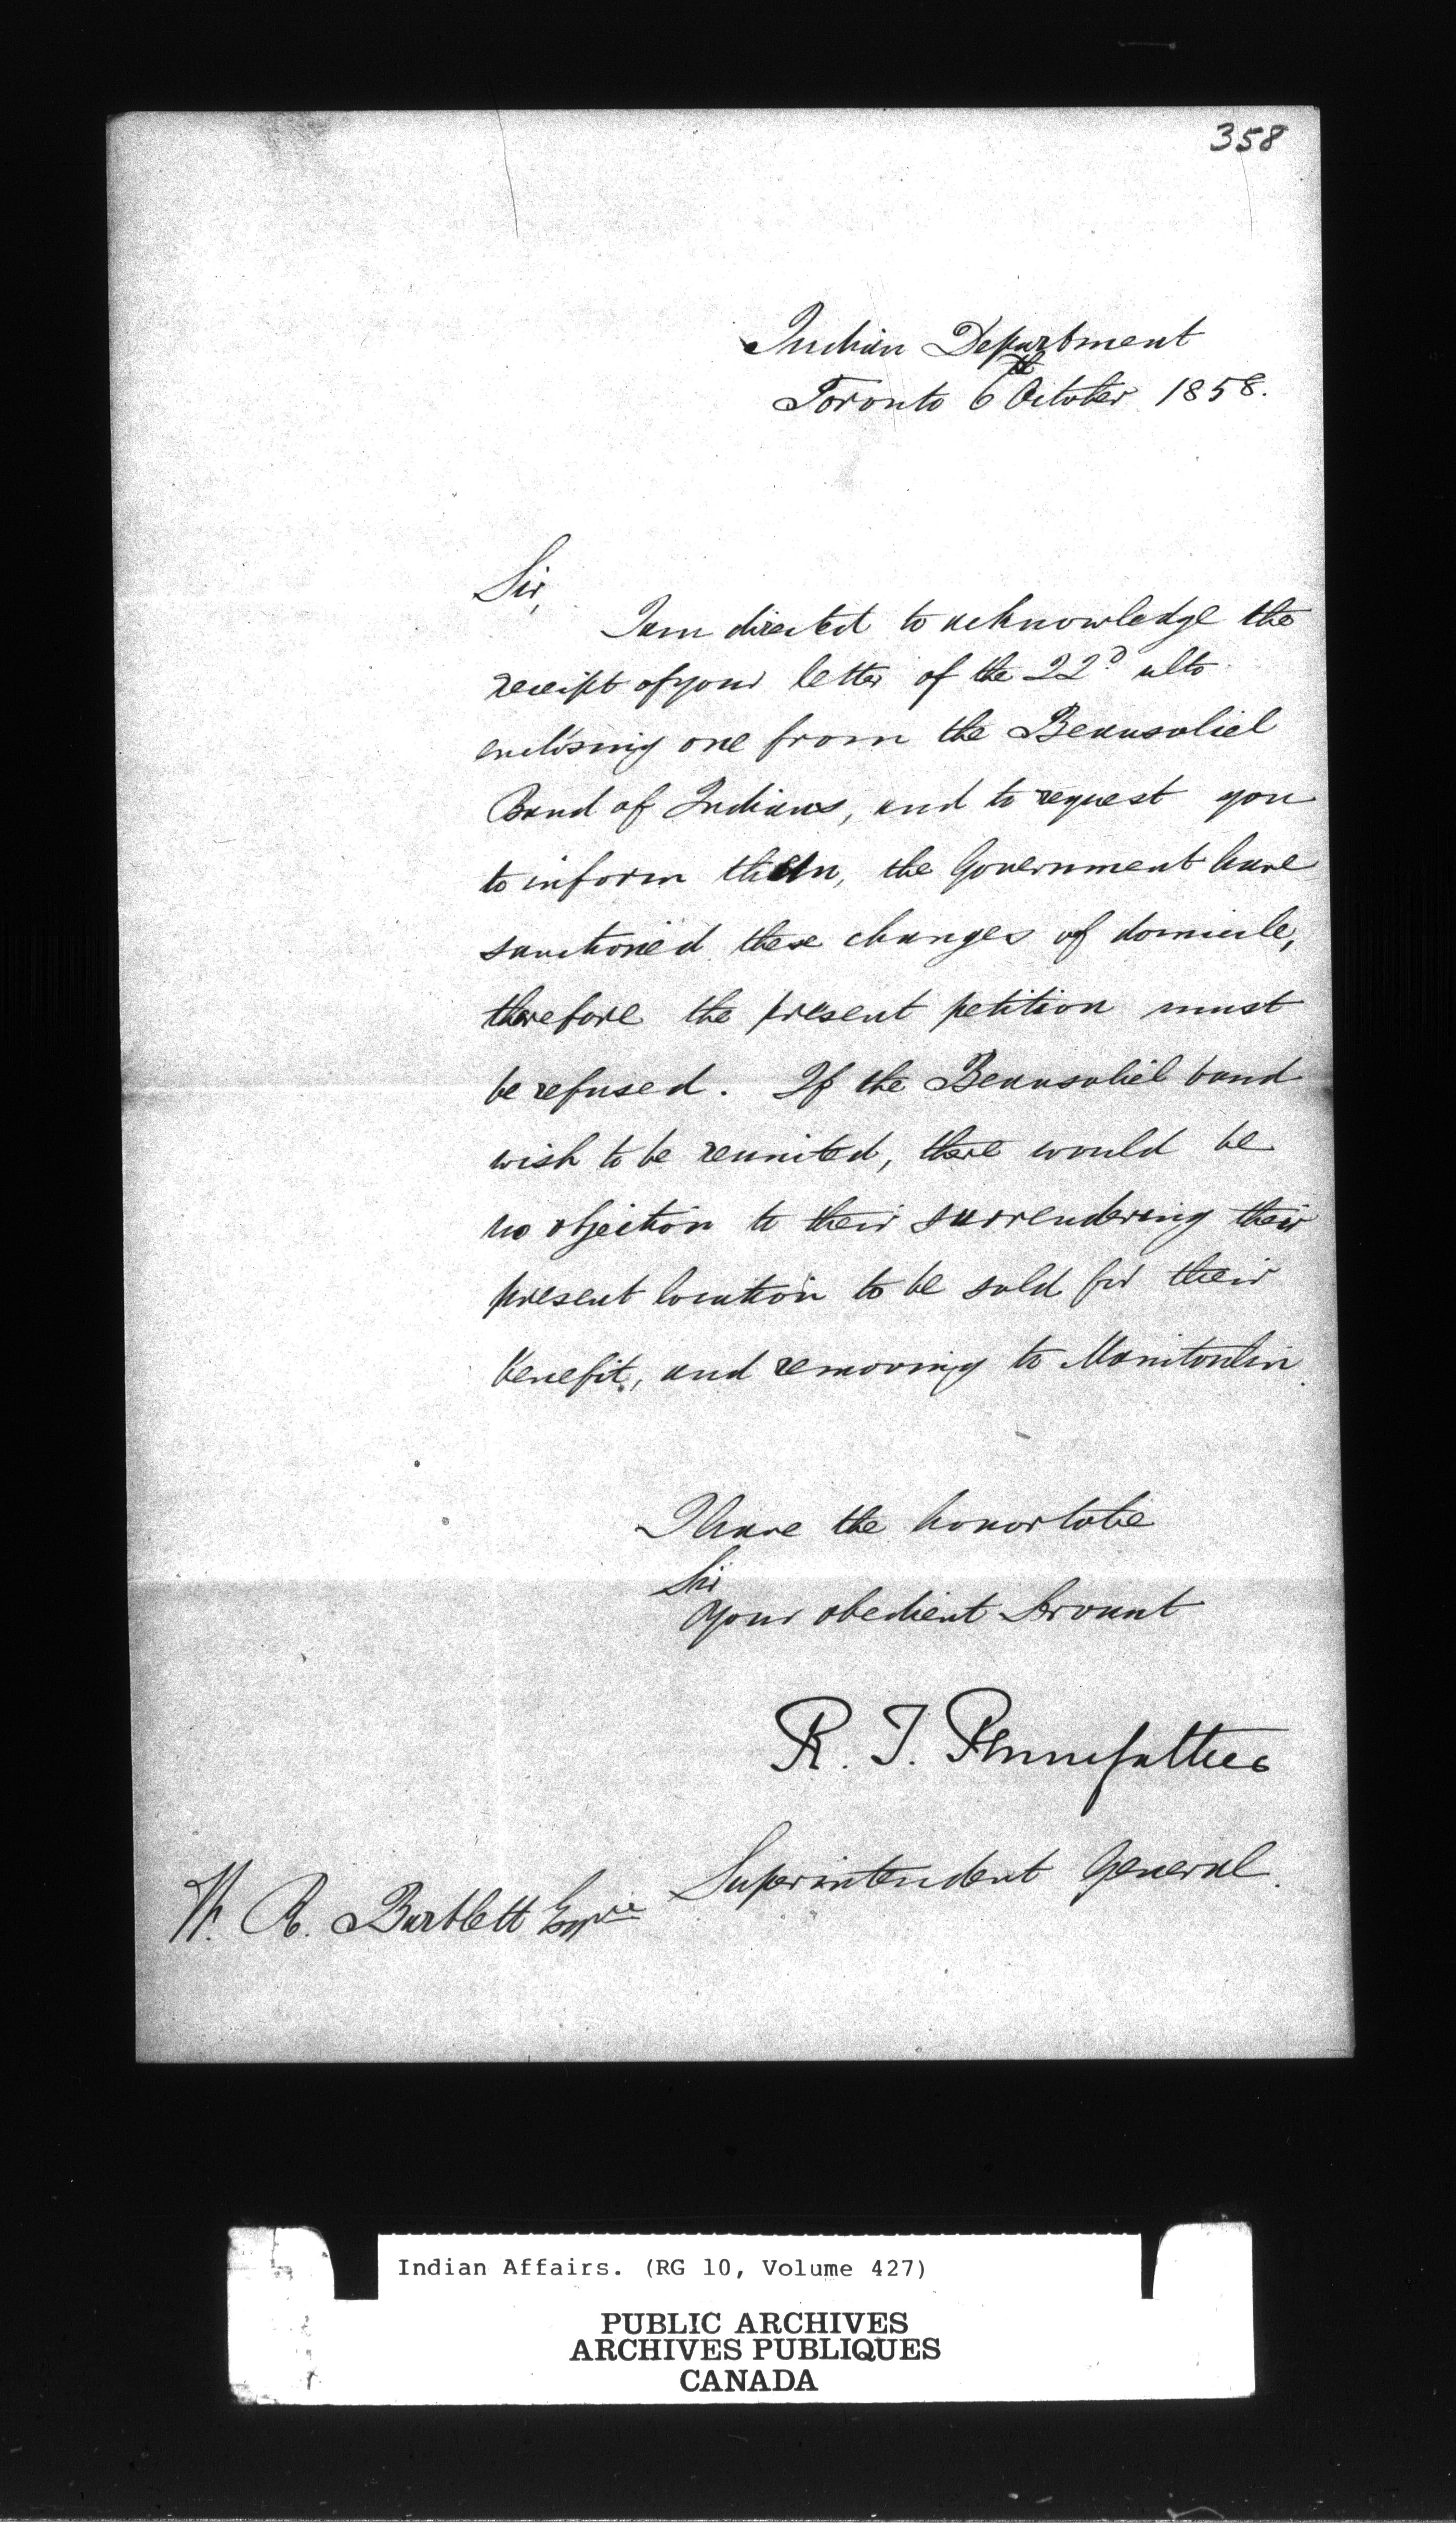 358
Indian Department
Toronto 6th October 1858.
Sir,
I am directed to acknowledge the
receipt of your letter of the 22d ulto
enclosing one from the Beausoliel
Band of Indians, and to request you
to inform them, the Government have
sanctioned these changes of domicile,
therefore the present petition must
be refused. If the Beausoliel band
wish to be reunited, there would be
no objection to their surrendering their
present location to be sold for their
benefit, and removing to Manitoulin.
I have the honor to be
Sir
Your obedient Servant
R. T. Pennefather
Superintendent General.
W. R. Bartlett Esqre
Indian Affairs. (RG 10, Volume 427)
PUBLIC ARCHIVES
ARCHIVES PUBLIQUES
CANADA